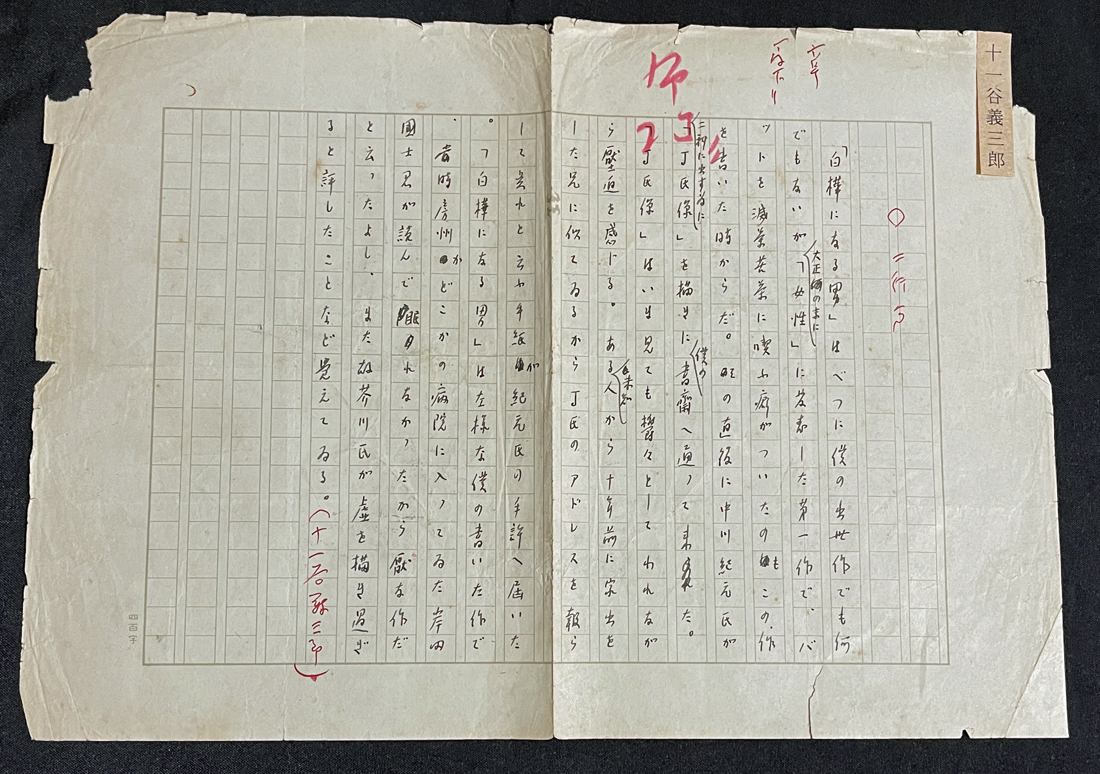 十一谷義三郎
六号
一段下り
二行アキ
「白樺になる男」はべつに僕の出世作でも何
でもないが大正の末に「女性」に発表した第一作で、バ
ットを滅茶苦茶に喫ふ癖がついたのもこの作
を書いた時からだ。の直後に中川紀元氏が
二科に出すために「丁氏像」を描きに僕の書斎へ通つて来た。
「丁氏像」はいま見ても鬱々としてわれなが
ら壓迫を感じる。ある未知人から十年前に家出を
した兄に似てゐるから丁氏のアドレスを報ら
して呉れと云ふ手紙が紀元氏の手許へ届いた
。「白樺になる男」は左様な僕の書いた作で
、当時房州かどこかの病院に入つてゐた岸田
國士君が読んで眠れなかつたから厭な作だ
と云つたよし、また故芥川氏が虚を描き過ぎ
ると評したことなど覚えてゐる。(十一谷義三郎)
四百字